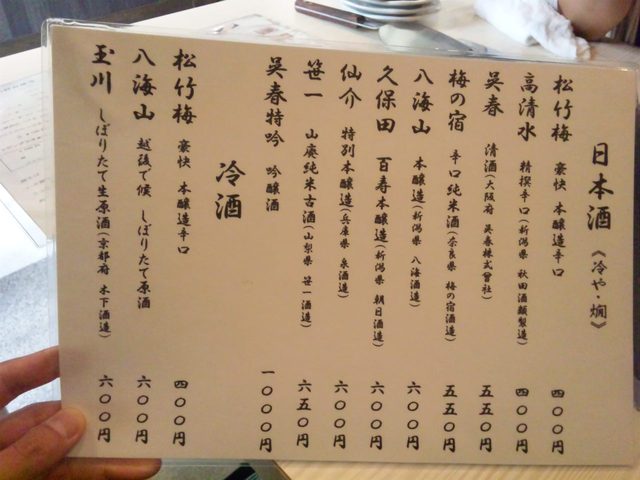 日本酒 《冷や・燗》
松竹梅 豪快 本醸造辛口 四〇〇円
高清水 精撰辛口(新潟県 秋田酒類製造) 四〇〇円
呉春 清酒(大阪府 呉春株式會社) 五五〇円
梅の宿 辛口純米酒(奈良県 梅の宿酒造) 五五〇円
八海山 本醸造(新潟県 八海酒造) 六〇〇円
久保田 百寿本醸造(新潟県 朝日酒造) 六〇〇円
仙介 特別本醸造(兵庫県 泉酒造) 六〇〇円
笹一 山廃純米古酒(山梨県 笹一酒造) 六五〇円
呉春特吟 吟醸酒 一〇〇〇円
冷酒
松竹梅 豪快 本醸造辛口 四〇〇円
八海山 越後で候 しぼりたて原酒 六〇〇円
玉川 しぼりたて生原酒(京都府 木下酒造) 六〇〇円